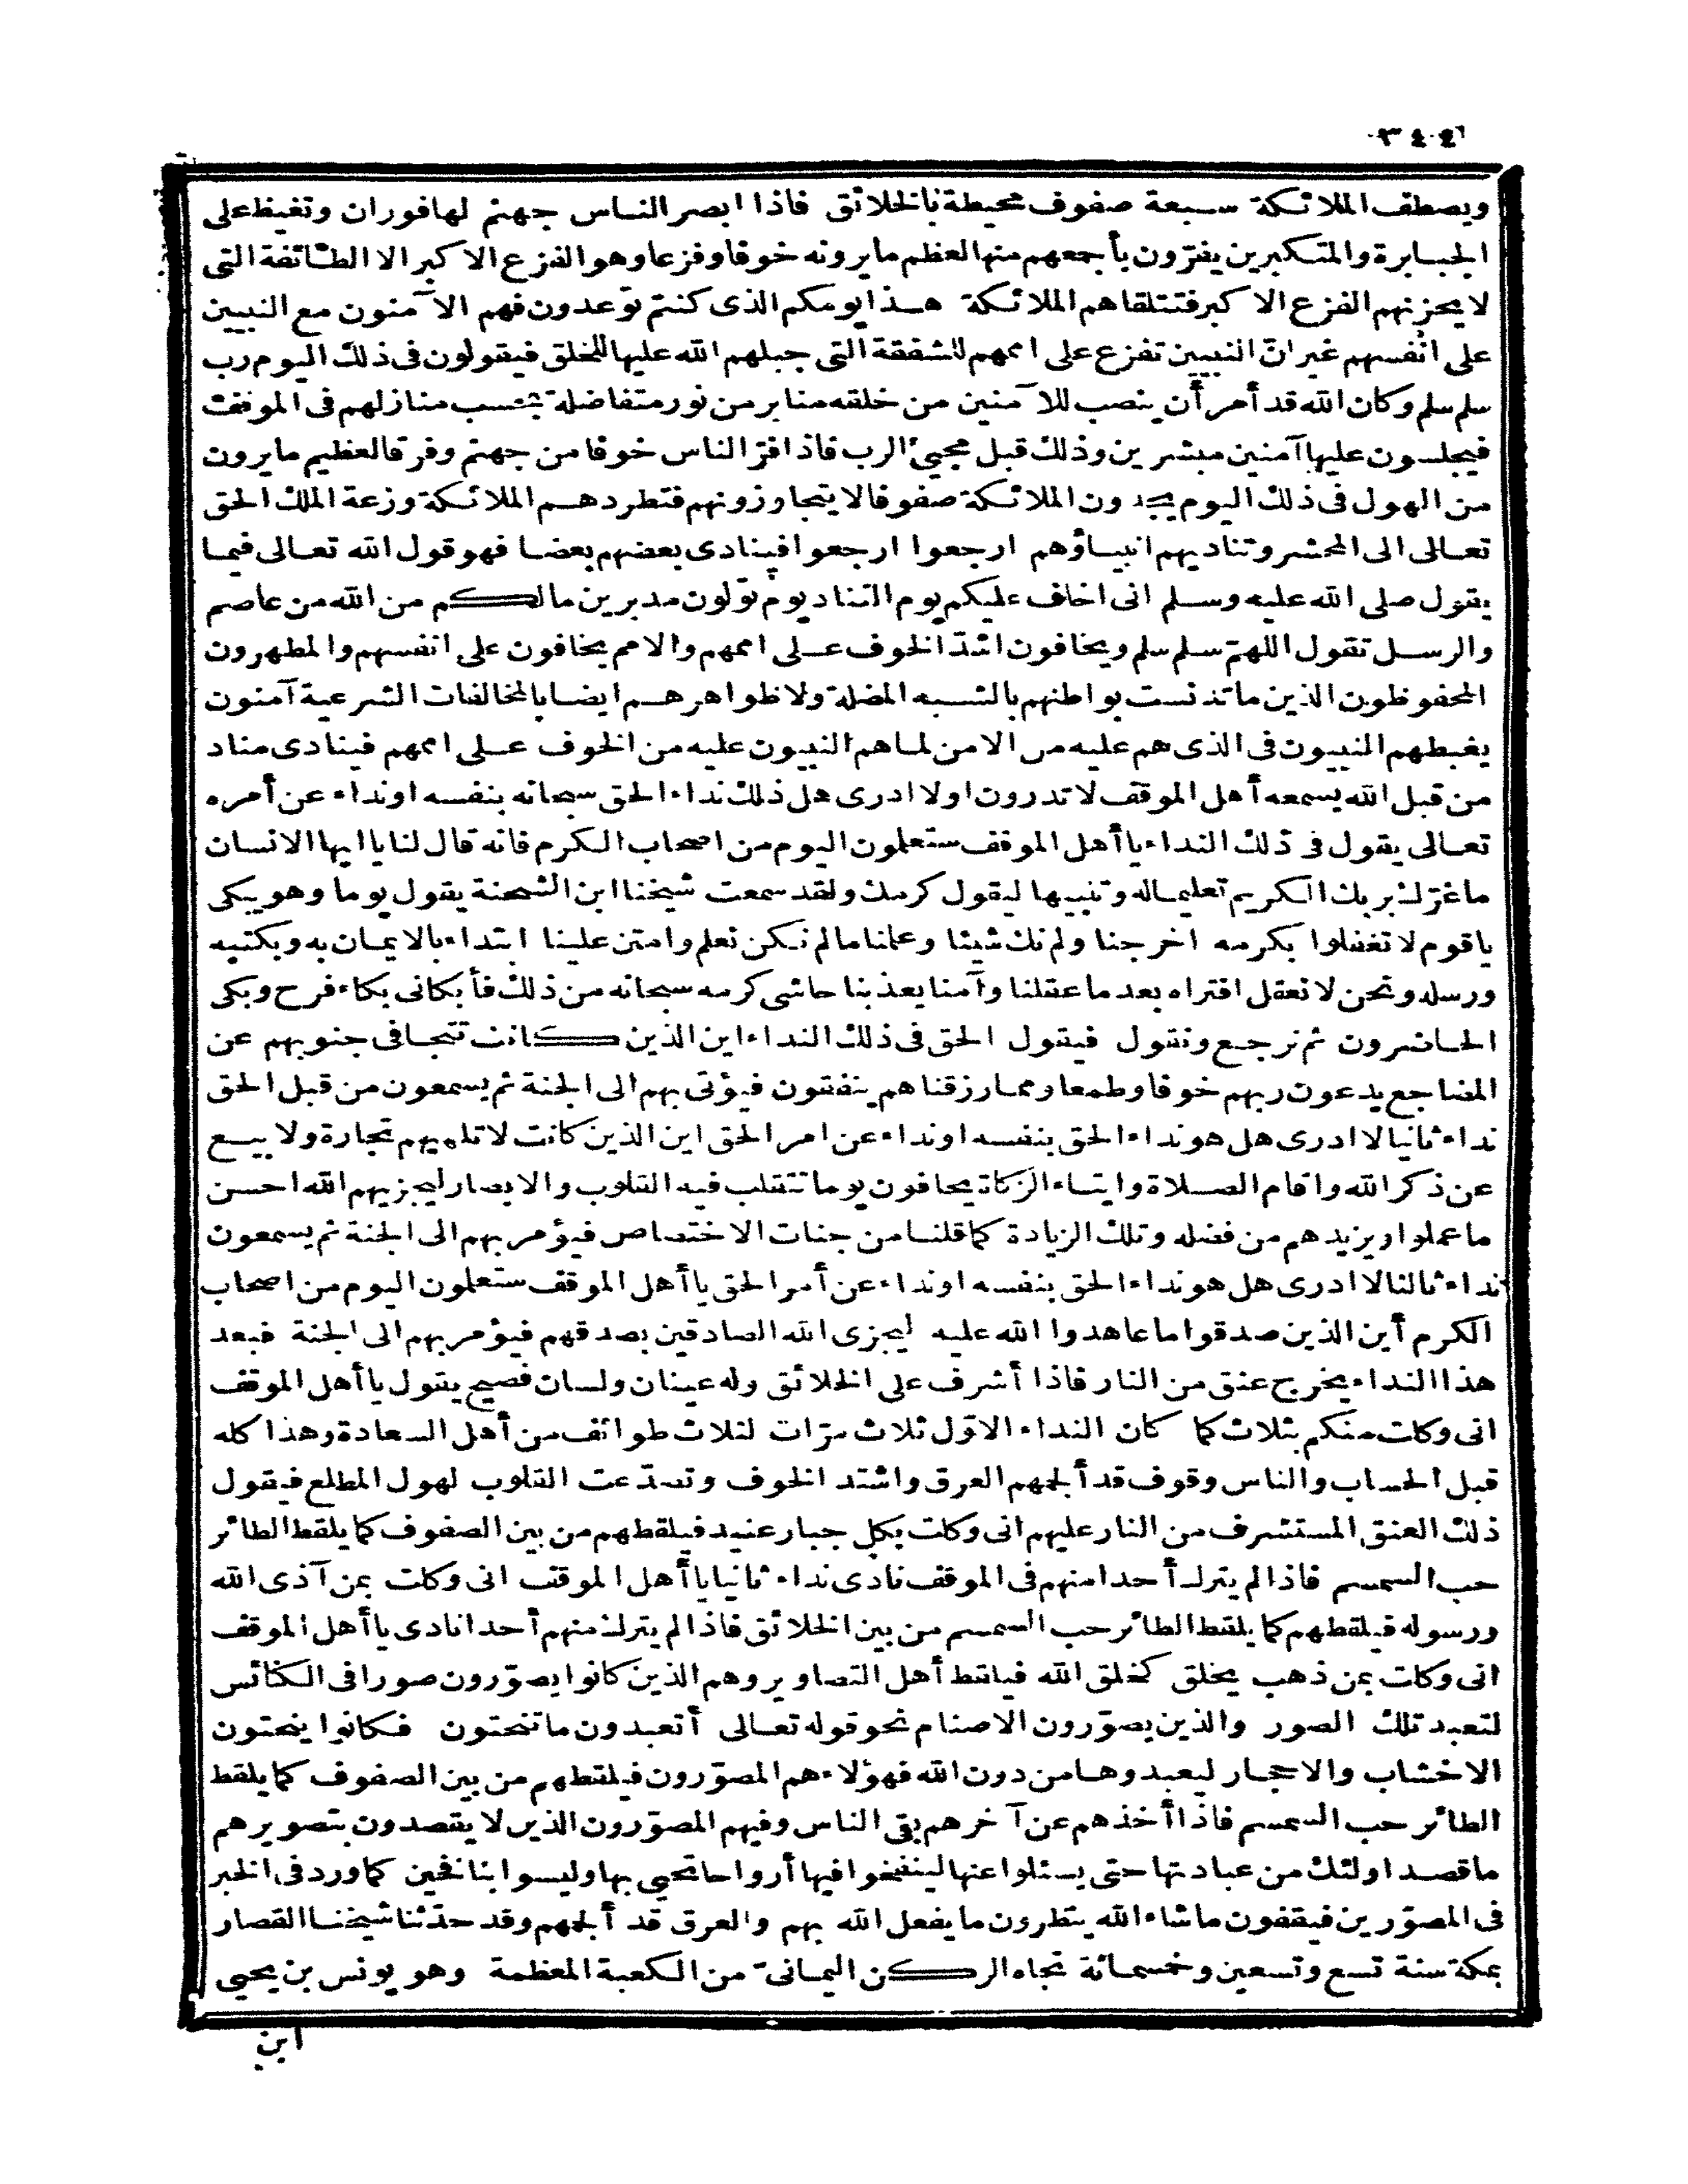 ويصطف الملائكة سبعة صفوف محيطة بالخلائق فاذا ابصر الناس جهنم لها فوران وتغيظ على
الجبابرة والمتكبرين يفرّون بأجمعهم منها لعظم ما يرونه خوفا وفزعا وهو الفزع الاكبر الا الطائفة التى
لا يحزنهم الفزع الاكبر فتتلقاهم الملائكة هذا يومكم الذى كنتم توعدون فهم الآمنون مع النبيين
على انفسهم غير انّ النبيين تفزع على اممهم للشفقة التى جبلهم الله عليها للخلق فيقولون فى ذلك اليوم رب
سلم سلم وكان الله قد أمر أن ينصب للآمنين من خلقه منابر من نور متفاضلة بحسب منازلهم فى الموقف
فيجلسون عليها آمنين مبشرين وذلك قبل مجيئ الرب فاذا فرّ الناس خوفا من جهنم وفرقا لعظيم ما يرون
من الهول فى ذلك اليوم يجدون الملائكة صفوفا لا يتجاوزونهم فتطردهم الملائكة وزعة الملك الحق
تعالى الى المحشر وتناديهم انبياؤهم ارجعوا ارجعوا فينادى بعضهم بعضا فهو قول الله تعالى فيما
يقول صلى الله عليه وسلم انى اخاف عليكم يوم التناد يوم تولون مدبرين مالكم من الله من عاصم
والرسل تقول اللهمّ سلم سلم ويخافون اشدّ الخوف على اممهم والامم يخافون على انفسهم والمطهرون
المحفوظون الذين ما تدنست بواطنهم بالشبه المضلة ولا ظواهرهم ايضا بالمخالفات الشرعية آمنون
يغبطهم النبيون فى الذى هم عليه من الامن لما هم النبيون عليه من الخوف على اممهم فينادى مناد
من قبل الله يسمعه أهل الموقف لا تدرون او لا ادرى هل ذلك نداء الحق سبحانه بنفسه او نداء عن أمره
تعالى يقول فى ذلك النداء يا أهل الموقف ستعلمون اليوم من اصحاب الكرم فانه قال لنا يا ايها الانسان
ما غرّك بربك الكريم تعليما له وتنبيها ليقول كرمك ولقد سمعت شيخنا ابن الشحنة يقول يوما وهو يبكى
يا قوم لا تفعلوا بكرمه اخرجنا ولم نك شيئا وعلمنا ما لم نكن نعلم وامتن علينا ابتداء بالايمان به وبكتبه
ورسله ونحن لا نعقل افتراه بعد ما عقلنا وآمنا يعذبنا حاشى كرمه سبحانه من ذلك فأبكانى بكاء فرح وبكى
الحاضرون ثم نرجع ونقول فيقول الحق فى ذلك النداء اين الذين كانت تتجافى جنوبهم عن
المضاجع يدعون ربهم خوفا وطمعا ومما رزقناهم ينفقون فيؤتى بهم الى الجنة ثم يسمعون من قبل الحق
نداء ثانيا لا ادرى هل هو نداء الحق بنفسه او نداء عن امر الحق اين الذين كانت لا تلهيهم تجارة ولا بيع
عن ذكر الله واقام الصلاة وايتاء الزكاة يخافون يوما تتقلب فيه القلوب والابصار ليجزيهم الله احسن
ما عملوا ويزيدهم من فضله وتلك الزيادة كما قلنا من جنات الاختصاص فيؤمر بهم الى الجنة ثم يسمعون
نداء ثالثا لا ادرى هل هو نداء الحق بنفسه او نداء عن أمر الحق يا أهل الموقف ستعلمون اليوم من اصحاب
الكرم أين الذين صدقوا ما عاهدوا الله عليه ليجزى الله الصادقين بصدقهم فيؤمر بهم الى الجنة فبعد
هذا النداء يخرج عنق من النار فاذا أشرف على الخلائق وله عينان ولسان فصيح يقول يا أهل الموقف
انى وكلت منكم بثلاث كما كان النداء الاوّل ثلاث مرّات لثلاث طوائف من أهل السعادة وهذا كله
قبل الحساب والناس وقوف قد ألجمهم العرق واشتد الخوف وتصدّعت القلوب لهول المطلع فيقول
ذلك العنق المستشرف من النار عليهم انى وكلت بكل جبار عنيد فيلقطهم من بين الصفوف كما يلقط الطائر
حب السمسم فاذا لم يترك أحدا منهم فى الموقف نادى نداء ثانيا يا أهل الموقف انى وكلت بمن آذى الله
ورسوله فيلقطهم كما يلقط الطائر حب السمسم من بين الخلائق فاذا لم يترك منهم أحدا نادى يا أهل الموقف
انى وكلت بمن ذهب يخلق كخلق الله فيلقط أهل التصاوير وهم الذين كانوا يصوّرون صورا فى الكنائس
لتعبد تلك الصور والذين يصوّرون الاصنام نحو قوله تعالى أتعبدون ما تنحتون فكانوا ينحتون
الاخشاب والاحجار ليعبدوها من دون الله فهؤلاء هم المصوّرون فيلقطهم من بين الصفوف كما يلقط
الطائر حب السمسم فاذا أخذهم عن آخرهم بقى الناس وفيهم المصوّرون الذين لا يقصدون بتصويرهم
ما قصد اولئك من عبادتها حتى يسئلوا عنها لينفخوا فيها أرواحا تحيى بها وليسوا بنافخين كما ورد فى الخبر
فى المصوّرين فيقفون ماشاء الله ينتظرون ما يفعل الله بهم والعرق قد ألجمهم وقد حدّثنا شيخنا القصار
بمكة سنة تسع وتسعين وخمسمائة تجاه الركن اليمانىّ من الكعبة المعظمة وهو يونس بن يحيى
ابن